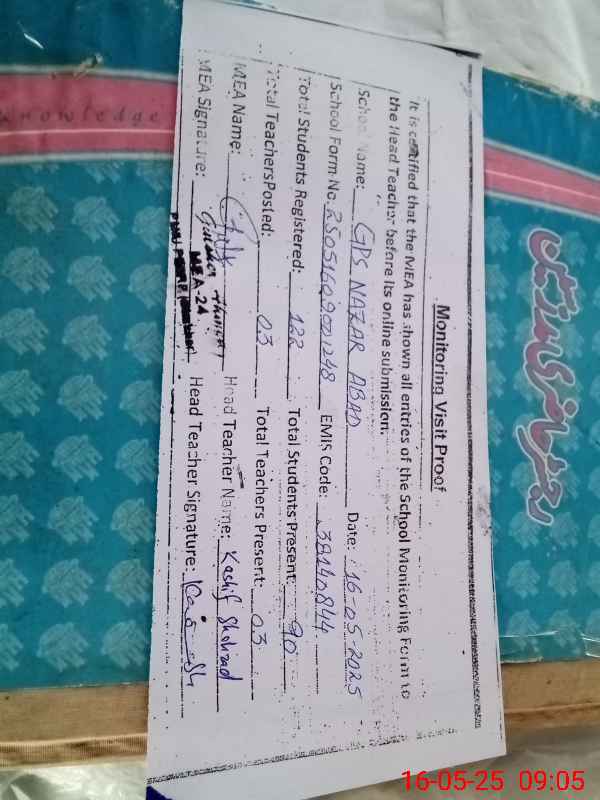 Monitoring Visit Proof
It is certified that the MEA has shown all entries of the School Monitoring Form to
the Head Teacher before its online submission.
School Name: GPS NAZAR ABAD Date: 16-05-2025
School Form No. 25051609001248 EMIS Code: 38140844
Total Students Registered: 122 Total Students Present: 90
Total Teachers Posted: 03 Total Teachers Present: 03
MEA Name: Head Teacher Name: Kashif Shahzad
MEA Signature: Head Teacher Signature:
MEA-24
knowledge
رجسٹر حاضری مدرسین
16-05-25 09:05